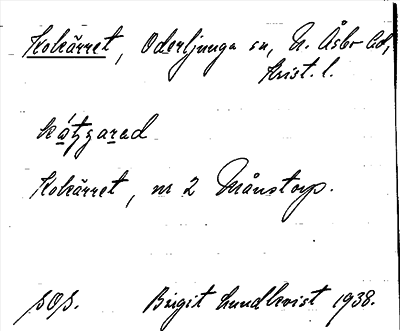 Kokärret, Oderljunga sn, N. Åsbo hd,
Krist. l.
Kokärret, nr 2 Månstorp.
Birgit Lundkvist 1938.